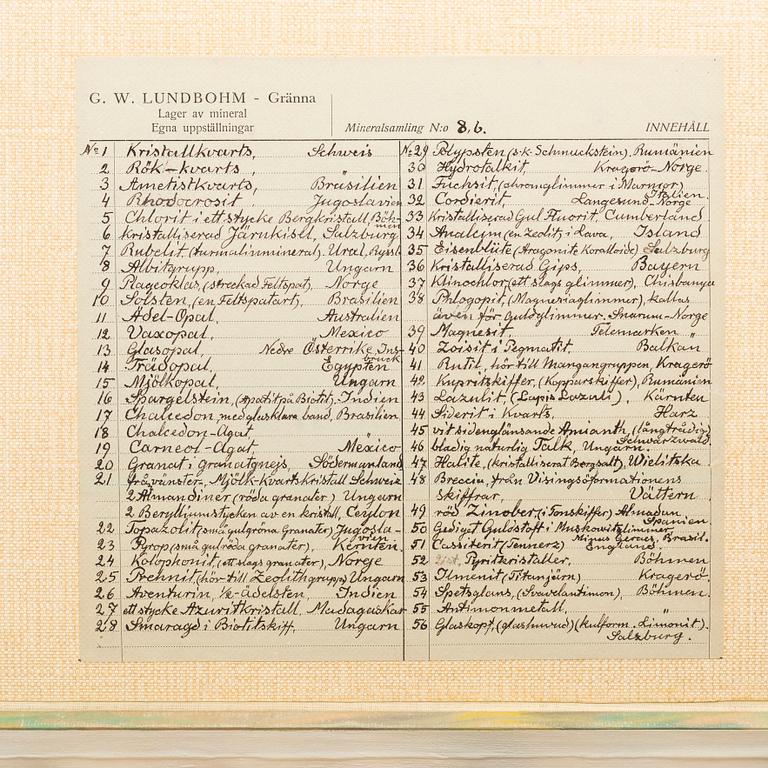 G. W. LUNDBOHM - Gränna
Lager av mineral
Egna uppställningar
Mineralsamling N:o 86.
INNEHÅLL
No 1 Kristallkvarts, Schweis
2 Rök-kvarts,
3 Ametistkvarts, Brasilien
4 Rhodocrosit, Jugoslavien
5 Chlorit i ett stycke Bergkristall, Böh-
men
6 kristalliserad Järnkisel, Salzburg
7 Rubelit, (turmalinmineral). Ural, Ryssl
8 Albitgrupp, Ungarn
9 Plagioklas, (streckad Feltspat), Norge
10 Solsten, (en Feltspatart), Brasilien
11 Ädel-Opal, Australien
12 Vaxopal, Mexico
13 Glasopal, Nedre Österrike, Ins-
bruck
14 Trädopal, Egypten
15 Mjölkopal, Ungarn
16 Spargelstein, (Apatit på Biotit), Indien
17 Chalcedon, med glasklara band, Brasilien
18 Chalcedon-Agat
19 Carneol-Agat Mexico
20 Granat i granatgnejs, Södermanland
21 fråvänster, Mjölk-Kvarts kristall Schweiz
2 Almandiner (röda granater) Ungarn
2 Beryllium stycken av en kristall, Ceylon
22 Topazolit, (små gulgröna Granater) Jugosla-
vien
23 Pyrop (små gulröda granater), Kernten.
24 Kolophonit, (ett slags granater), Norge
25 Prehnit, (hör till Zeolithgrupp) Ungarn
26 Aventurin, 1/2-ädelsten, Indien
27 ett stycke Azuritkristall, Madagaskar
28 Smaragd i Biotitskiff, Ungarn
No 29 Polypsten (s.k. Schmuckstein), Rumänien
30 Hydrotalkit, Kragerö-Norge.
31 Fuchsit, (chromglimmer i Marmor)
Italien.
32 Cordierit, Langesund-Norge
33 Kristalliserad Gul Fluorit, Cumberland
34 Analcim (en Zeolit) i Lava, Island
35 Eisenblüte (Aragonite Koralloide) Salzburg
36 Kristalliserad Gips, Bayern
37 Klinochlor (ett slags glimmer), Chisbanya
38 Phlogopit, (Magnesiaglimmer), kallas
även för Guldglimmer. Snarum-Norge
39 Magnesit, Telemarken "
40 Zoisit i Pegmatit, Balkan
41 Rutil, hör till Mangangruppen, Kragerö
42 Kupritzkiffer, (Kopparskiffer), Rumänien
43 Lazulit, (Lapis Lazuli), Kärnten
44 Siderit i Kvarts, Harz
45 vit sidenglänsande Amianth, (långtrådig)
Schwarzwald.
46 bladig naturlig Talk, Ungarn.
47 Halite, (kristalliserat Bergsalt), Wielitska
48 Breccia, från Visingsöformationens
skiffrar, Vättern
49 röd Zinober, (i Tonskiffer) Almadan
Spanien.
50 Gediget Guldstoft i Muskowitglimmer,
Minas Geraes, Brasil.
51 Cassiterit (Tennerz) England.
52 Pyritkristaller, Böhmen
53 Ilmenit, (Titanjärn) Kragerö.
54 Spetsglans, (Svavelantimon), Böhmen.
55 Antimonmetall, "
56 Glaskopf, (glashuvud) (kulform. Limonit).
Salzburg.